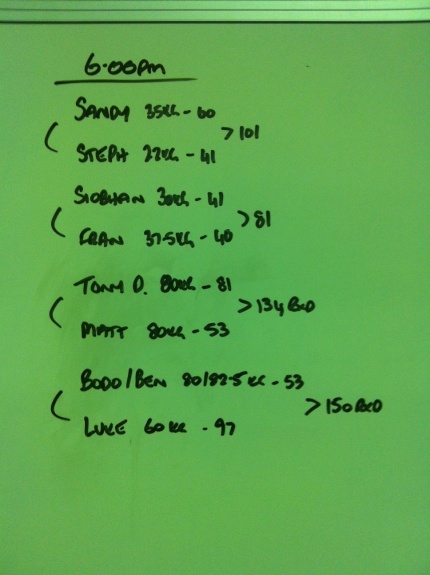 6:00pm
SANDY 35KG - 60
> 101
STEPH 22KG - 41
SIOBHAN 30KG - 41
> 81
FRAN 37.5KG - 40
TONY D. 80KG - 81
> 134 RXD
MATT 80KG - 53
BODO/BEN 80/82.5KG - 53
> 150 RXD
LUKE 60KG - 97